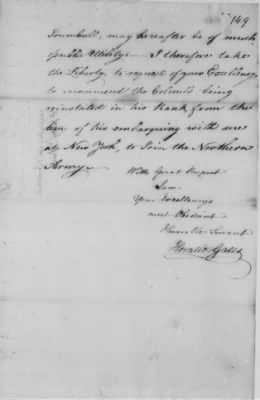 149
Trumbull, may hereafter be of much
public Utility. I therefore take
the Liberty, to request of your Excellency
to recommend the Colonels being
reinstated in his Rank from the
time of his embarquing with me
at New York, to Join the Northern
Army.
With Great Respect
I am
Your Excellencys
most Obedient
Humble Servant
Horatio Gates